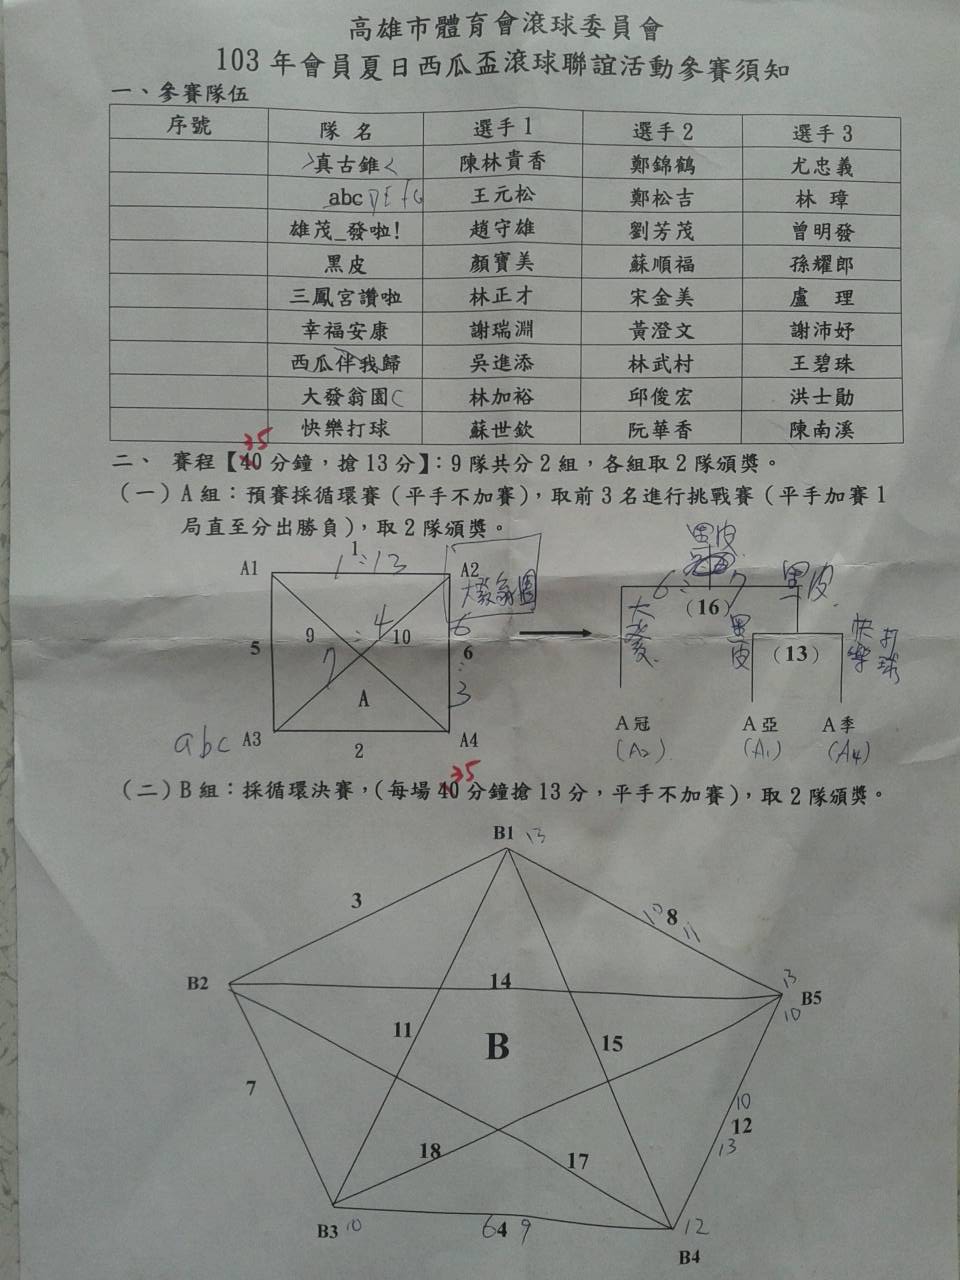 高雄市體育會滾球委員會
103年會員夏日西瓜盃滾球聯誼活動參賽須知
一、參賽隊伍
序號 隊名 選手1 選手2 選手3
>真古錐< 陳林貴香 鄭錦鶴 尤忠義
abc DEFG 王元松 鄭松吉 林璋
雄茂_發啦! 趙守雄 劉芳茂 曾明發
黑皮 顏寶美 蘇順福 孫耀郎
三鳳宮讚啦 林正才 宋金美 盧 理
幸福安康 謝瑞淵 黃澄文 謝沛妤
西瓜伴我歸 吳進添 林武村 王碧珠
大發翁園 林加裕 邱俊宏 洪士勛
快樂打球 蘇世欽 阮華香 陳南溪
35
二、 賽程【40分鐘，搶13分】：9隊共分2組，各組取2隊頒獎。
（一）A組：預賽採循環賽（平手不加賽），取前3名進行挑戰賽（平手加賽1
局直至分出勝負），取2隊頒獎。
黑皮
A1 1 1:13 A2 6:7 黑皮
大發翁園 (16)
9 :4 10 6 大發 黑皮 快樂打球
5 7 6 (13)
A :3
abc A3 2 A4 A冠 A亞 A季
(A2) (A1) (A4)
35
（二）B組：採循環決賽，（每場40分鐘搶13分，平手不加賽），取2隊頒獎。
B1 13
3 10 8 11
B2 14 13 B5
10
11 B 15
7 10 12 13
18 17
B3 10 6 4 9 12
B4